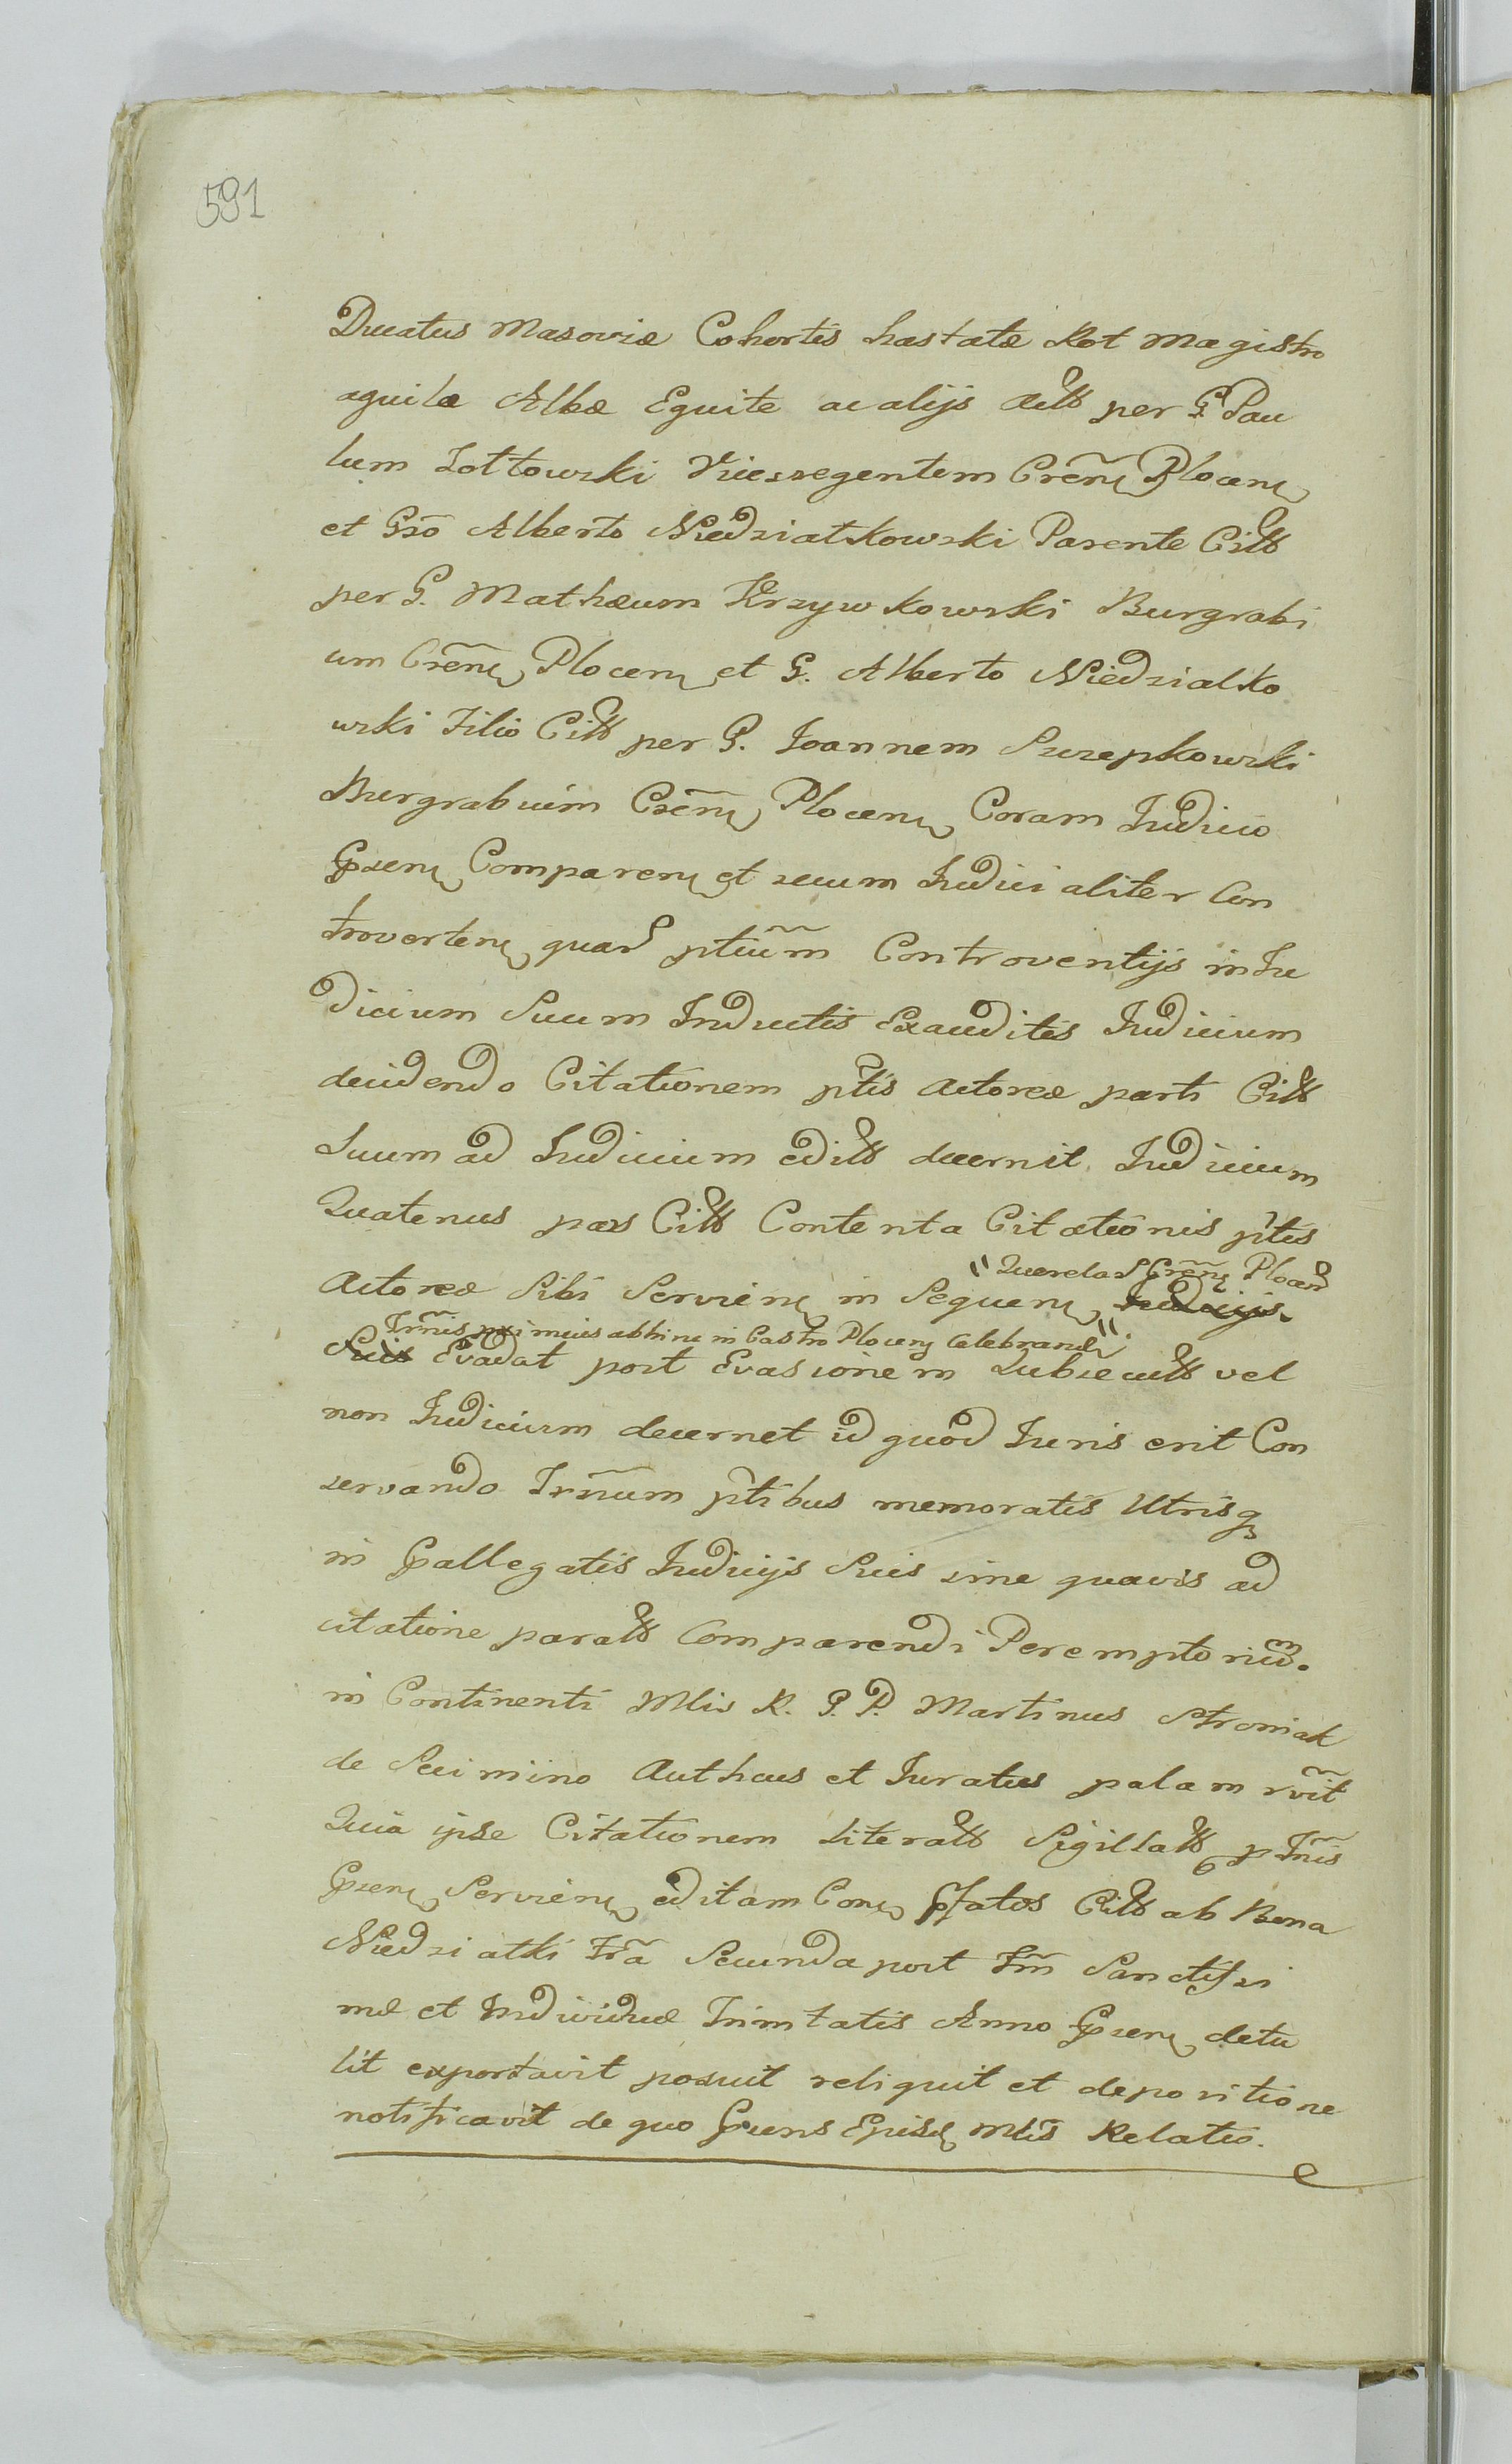 591
Ducatus Masoviæ Cohortis hastatæ Rot Magistro
aquilæ Albæ Equite ac alijs Actt per G Pau
lum Zołtowski Vicesregentem Cren̄ Plocen
et Gsō Alberto Niedziałkowski Parente Citt
per G. Mathæum Krzywkowski Burgrabi
um Cren̄ Plocen et G. Alberto Niedziałko
wski Filio Citt per G. Joannem Szczepkowski
Burgrabium Cren̄ Plocen Coram Judicio
Pnsen Comparen et secum Judicialiter Con
troverten quar ptiūm Controventijs in Ju
dicium Suum Inductis Exauditis Judicium
decidendo Citationem ptis Actoreæ parti Citt
Suum ad Judicium editt decernit. Judicium
Quatenus pars Citt Contenta Citationis ptis
"Querelar Cren̄ Plocen
Actoreæ Sibi Servien in Sequen Judicijs
Trn̄is pximius abhinc in Castro Plocen Celebrand"
Suis Evadat post Evasionem Subsecutt vel
non Judicium decernet id quod Juris erit Con
servando Trn̄um ptibus memoratis Utrisq
in Pallegatis Judicijs Suis sine quavis ad
citatione paratt Comparendi Peremptorium.
in Continenti Mlis R. P. P. Martinus Stroniak
de Scimino Authcus et Juratus palam rvit
Quia ipse Citationem Literatt Sigillatt p Trn̄is
Pnsen Servien editam Con Pfatos Citt ab Bona
Niedziałki Fr̄a Secunda post Fm̄ Sanctissi
mæ et Individuæ Trinitatis Anno Pnsen detu
lit exportavit posuit reliquit et depositione
notificavit de quo Pnsens Ejusd Mlis Relatio.